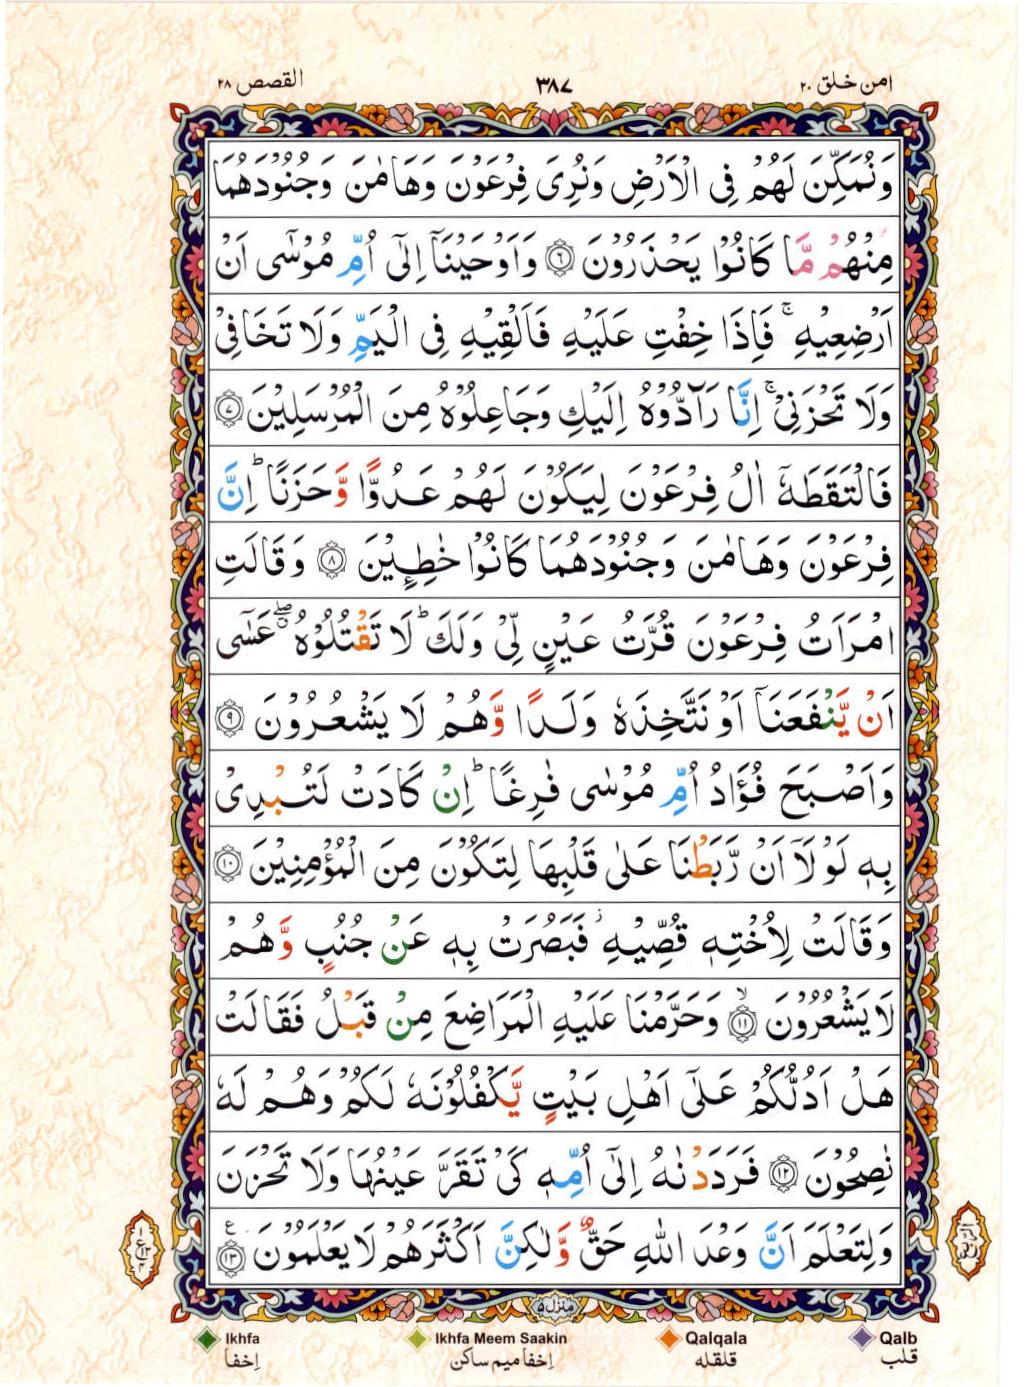 القصص ٢٨ ٣٨٧ امن خلق ٢٠
وَنُمَكِّنَ لَهُمْ فِی الْاَرْضِ وَنُرِیَ فِرْعَوْنَ وَهَامٰنَ وَجُنُوْدَهُمَا
مِنْهُمْ مَّا كَانُوْا یَحْذَرُوْنَ ۝٦ وَاَوْحَیْنَاۤ اِلٰۤی اُمِّ مُوْسٰۤی اَنْ
اَرْضِعِیْهِ ۚ فَاِذَا خِفْتِ عَلَیْهِ فَاَلْقِیْهِ فِی الْیَمِّ وَلَا تَخَافِیْ
وَلَا تَحْزَنِیْ ۚ اِنَّا رَآدُّوْهُ اِلَیْكِ وَجَاعِلُوْهُ مِنَ الْمُرْسَلِیْنَ ۝٧
فَالْتَقَطَهٗۤ اٰلُ فِرْعَوْنَ لِیَكُوْنَ لَهُمْ عَدُوًّا وَّحَزَنًا ؕ اِنَّ
فِرْعَوْنَ وَهَامٰنَ وَجُنُوْدَهُمَا كَانُوْا خٰطِـِٕیْنَ ۝٨ وَقَالَتِ
امْرَاَتُ فِرْعَوْنَ قُرَّتُ عَیْنٍ لِّیْ وَلَكَ ؕ لَا تَقْتُلُوْهُ ۖۗ عَسٰۤی
اَنْ یَّنْفَعَنَاۤ اَوْ نَتَّخِذَهٗ وَلَدًا وَّهُمْ لَا یَشْعُرُوْنَ ۝٩
وَاَصْبَحَ فُؤَادُ اُمِّ مُوْسٰی فٰرِغًا ؕ اِنْ كَادَتْ لَتُبْدِیْ
بِهٖ لَوْلَاۤ اَنْ رَّبَطْنَا عَلٰی قَلْبِهَا لِتَكُوْنَ مِنَ الْمُؤْمِنِیْنَ ۝١٠
وَقَالَتْ لِاُخْتِهٖ قُصِّیْهِ ؗ فَبَصُرَتْ بِهٖ عَنْ جُنُبٍ وَّهُمْ
لَا یَشْعُرُوْنَ ۙ۝١١ وَحَرَّمْنَا عَلَیْهِ الْمَرَاضِعَ مِنْ قَبْلُ فَقَالَتْ
هَلْ اَدُلُّكُمْ عَلٰۤی اَهْلِ بَیْتٍ یَّكْفُلُوْنَهٗ لَكُمْ وَهُمْ لَهٗ
نٰصِحُوْنَ ۝١٢ فَرَدَدْنٰهُ اِلٰۤی اُمِّهٖ كَیْ تَقَرَّ عَیْنُهَا وَلَا تَحْزَنَ
وَلِتَعْلَمَ اَنَّ وَعْدَ اللّٰهِ حَقٌّ وَّلٰكِنَّ اَكْثَرَهُمْ لَا یَعْلَمُوْنَ ۝١٣ ع
الربع
ع
منزل ٥
Ikhfa Ikhfa Meem Saakin Qalqala Qalb
اِخفا اِخفا میم ساکن قلقله قلب